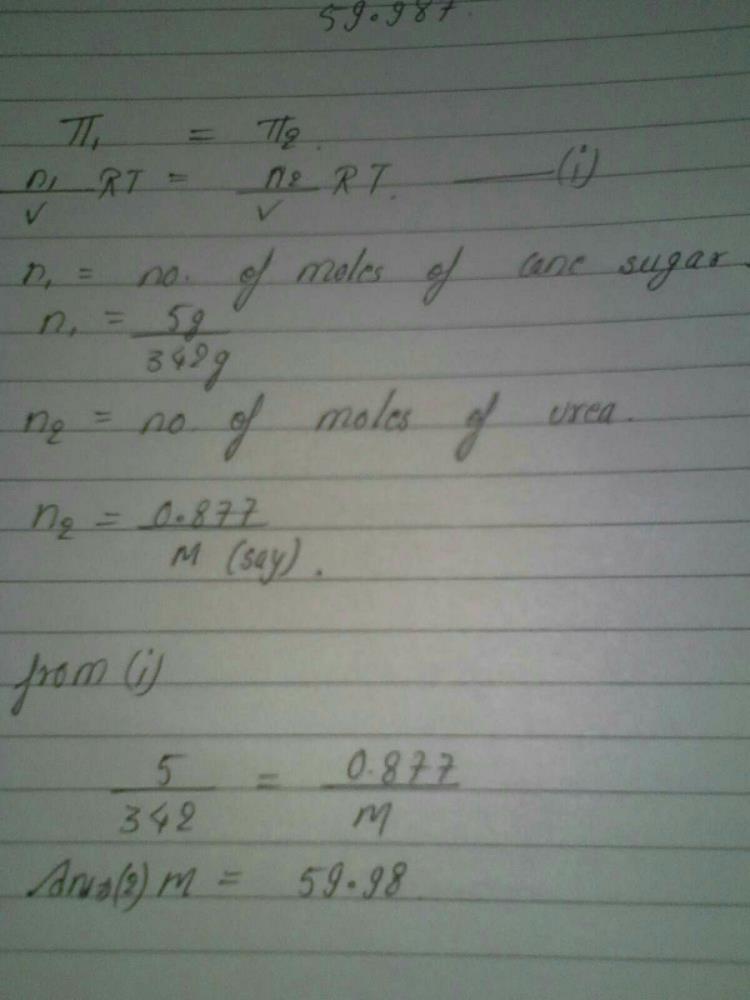 59.987.
π₁ = π₂.
n₁/V RT = n₂/V RT. —— (i)
n₁ = no. of moles of cane sugar.
n₁ = 5g/342g
n₂ = no. of moles of urea.
n₂ = 0.877/M (say).
from (i)
5/342 = 0.877/M
Ans(2) M = 59.98